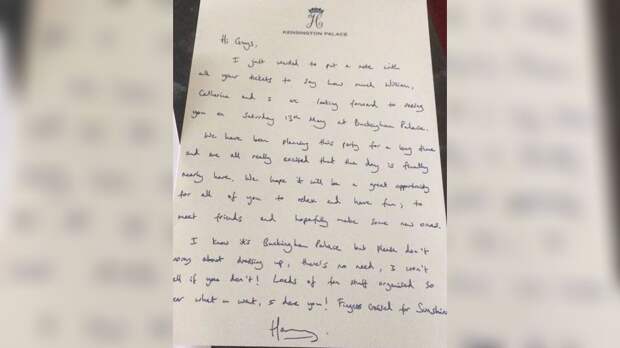 H
KENSINGTON PALACE
Hi Guys,
I just wanted to put a note with
all your tickets to say how much William,
Catherine and I are looking forward to seeing
you on Saturday 13th May at Buckingham Palace.
We have been planning this party for a long time
and are all really excited that the day is finally
nearly here. We hope it will be a great opportunity
for all of you to relax and have fun; to
meet friends and hopefully make some new ones.
I know it's Buckingham Palace but please don't
worry about dressing up, there's no need, I won't
if you don't! Loads of fun stuff organised so
wear what u want, I dare you! Fingers crossed for Sunshine
Harry